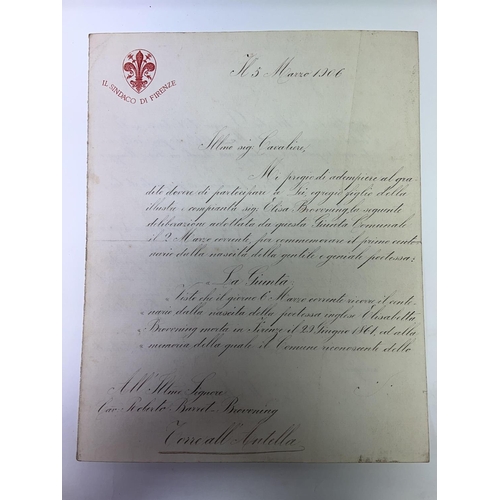 IL SINDACO DI FIRENZE
Il 3 Marzo 1906
Illmo sig. Cavaliere,
Mi pregio di adempiere al gra-
dito dovere di partecipare a Lei, egregio figlio della
illustre e compianta sig. Elisa Browning, la seguente
deliberazione adottata da questa Giunta Comunale
il 2 Marzo corrente per commemorare il primo cente-
nario dalla nascita della gentile e geniale poetessa:
La Giunta
Visto che il giorno 6 Marzo corrente ricorre il cente-
nario dalla nascita della poetessa inglese Elisabetta
Browning morta in Firenze il 29 Giugno 1861 ed alla
memoria della quale il Comune riconoscente dello
All' Illmo Signore
Cav. Roberto Barret-Browning
Torre all' Antella